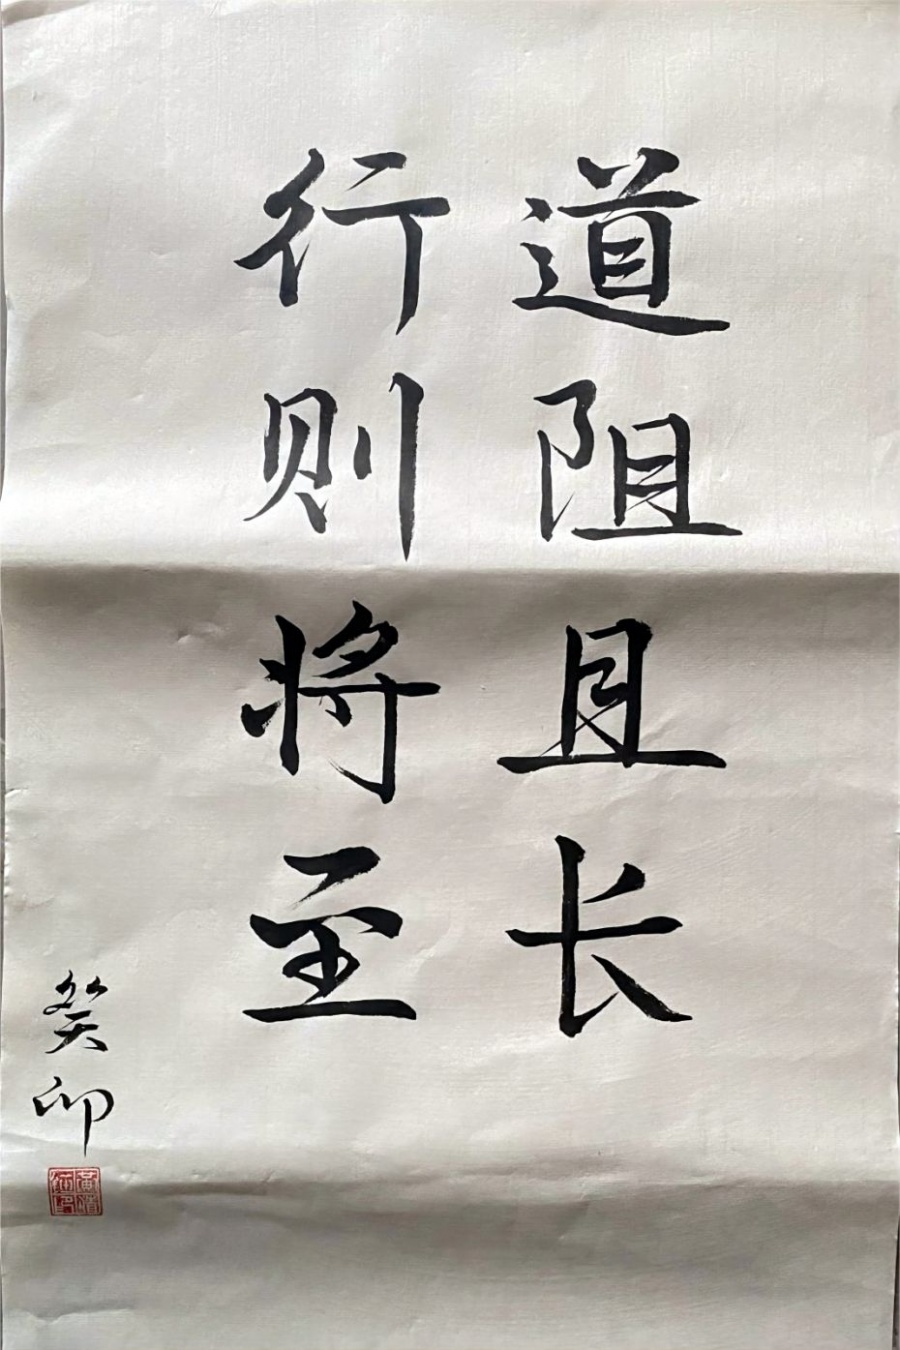 道阻且长
行则将至
癸卯